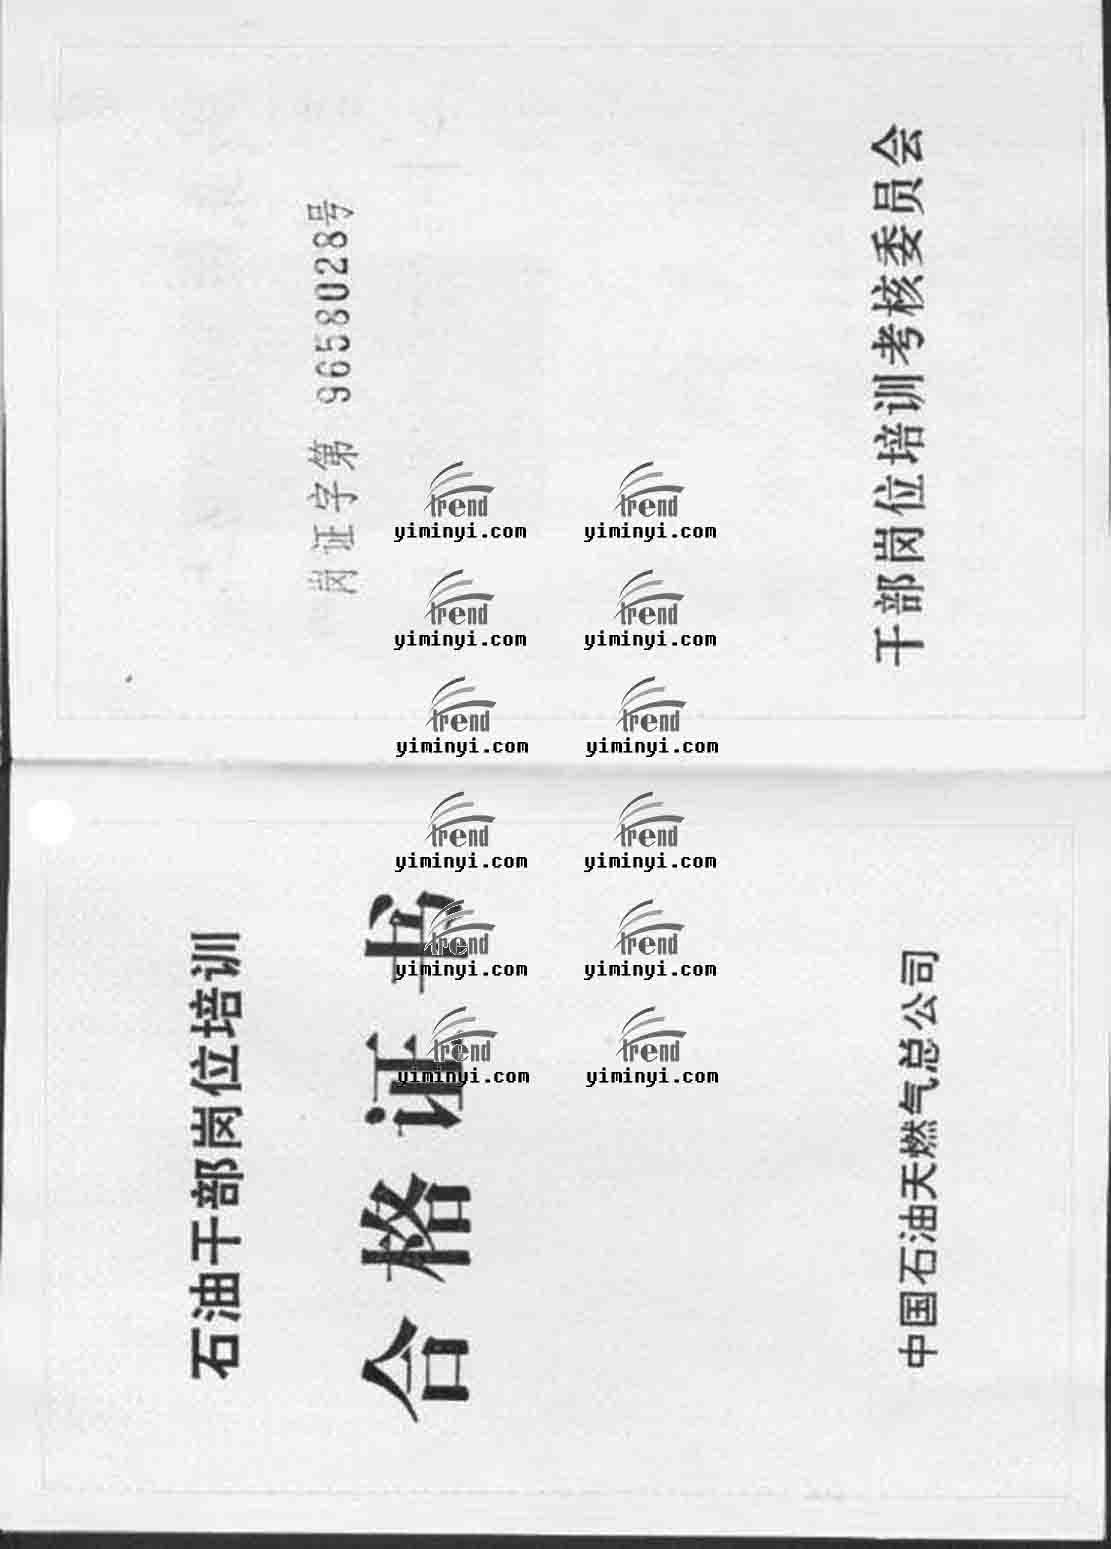 石油干部岗位培训
合格证书
中国石油天然气总公司
岗证字第 96580028号
干部岗位培训考核委员会
trend
yiminyi.com
trend
yiminyi.com
trend
yiminyi.com
trend
yiminyi.com
trend
yiminyi.com
trend
yiminyi.com
trend
yiminyi.com
trend
yiminyi.com
trend
yiminyi.com
trend
yiminyi.com
trend
yiminyi.com
trend
yiminyi.com